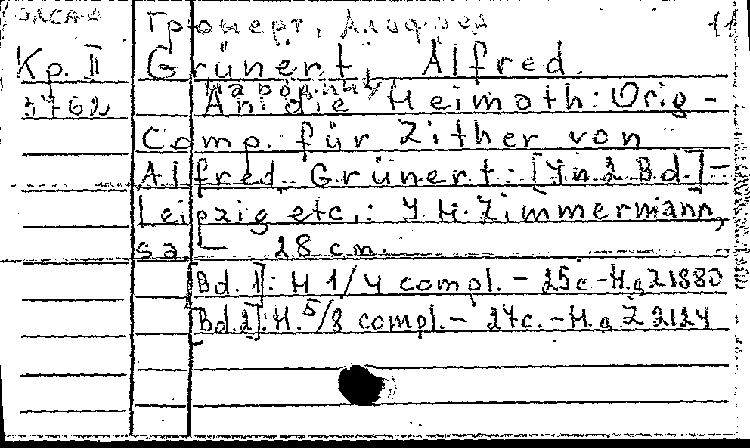 Грюнерт, Альфред 11
Кр. II Grünert, Alfred.
5762 An die Heimath: Orig-
Comp. für Zither von
Alfred Grünert: [In 2 Bd.] —
Leipzig etc.: J. H. Zimmermann,
s.a. — 28 cm.
[Bd. 1]: H 1/4 compl. — 25c — H.д Z 1880
[Bd. 2]: H. 5/8 compl. — 27c. — H.д Z 2124